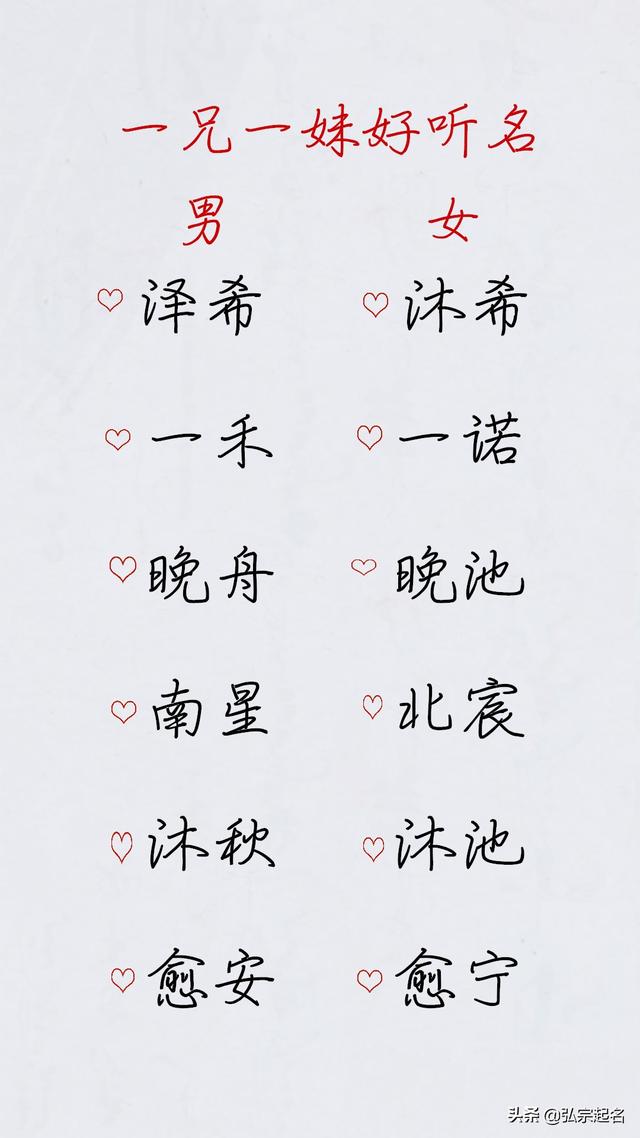 一兄一妹好听名
男 女
♡泽希 ♡沐希
♡一禾 ♡一诺
♡晚舟 ♡晚池
♡南星 ♡北宸
♡沐秋 ♡沐池
♡愈安 ♡愈宁
头条 @弘宗起名